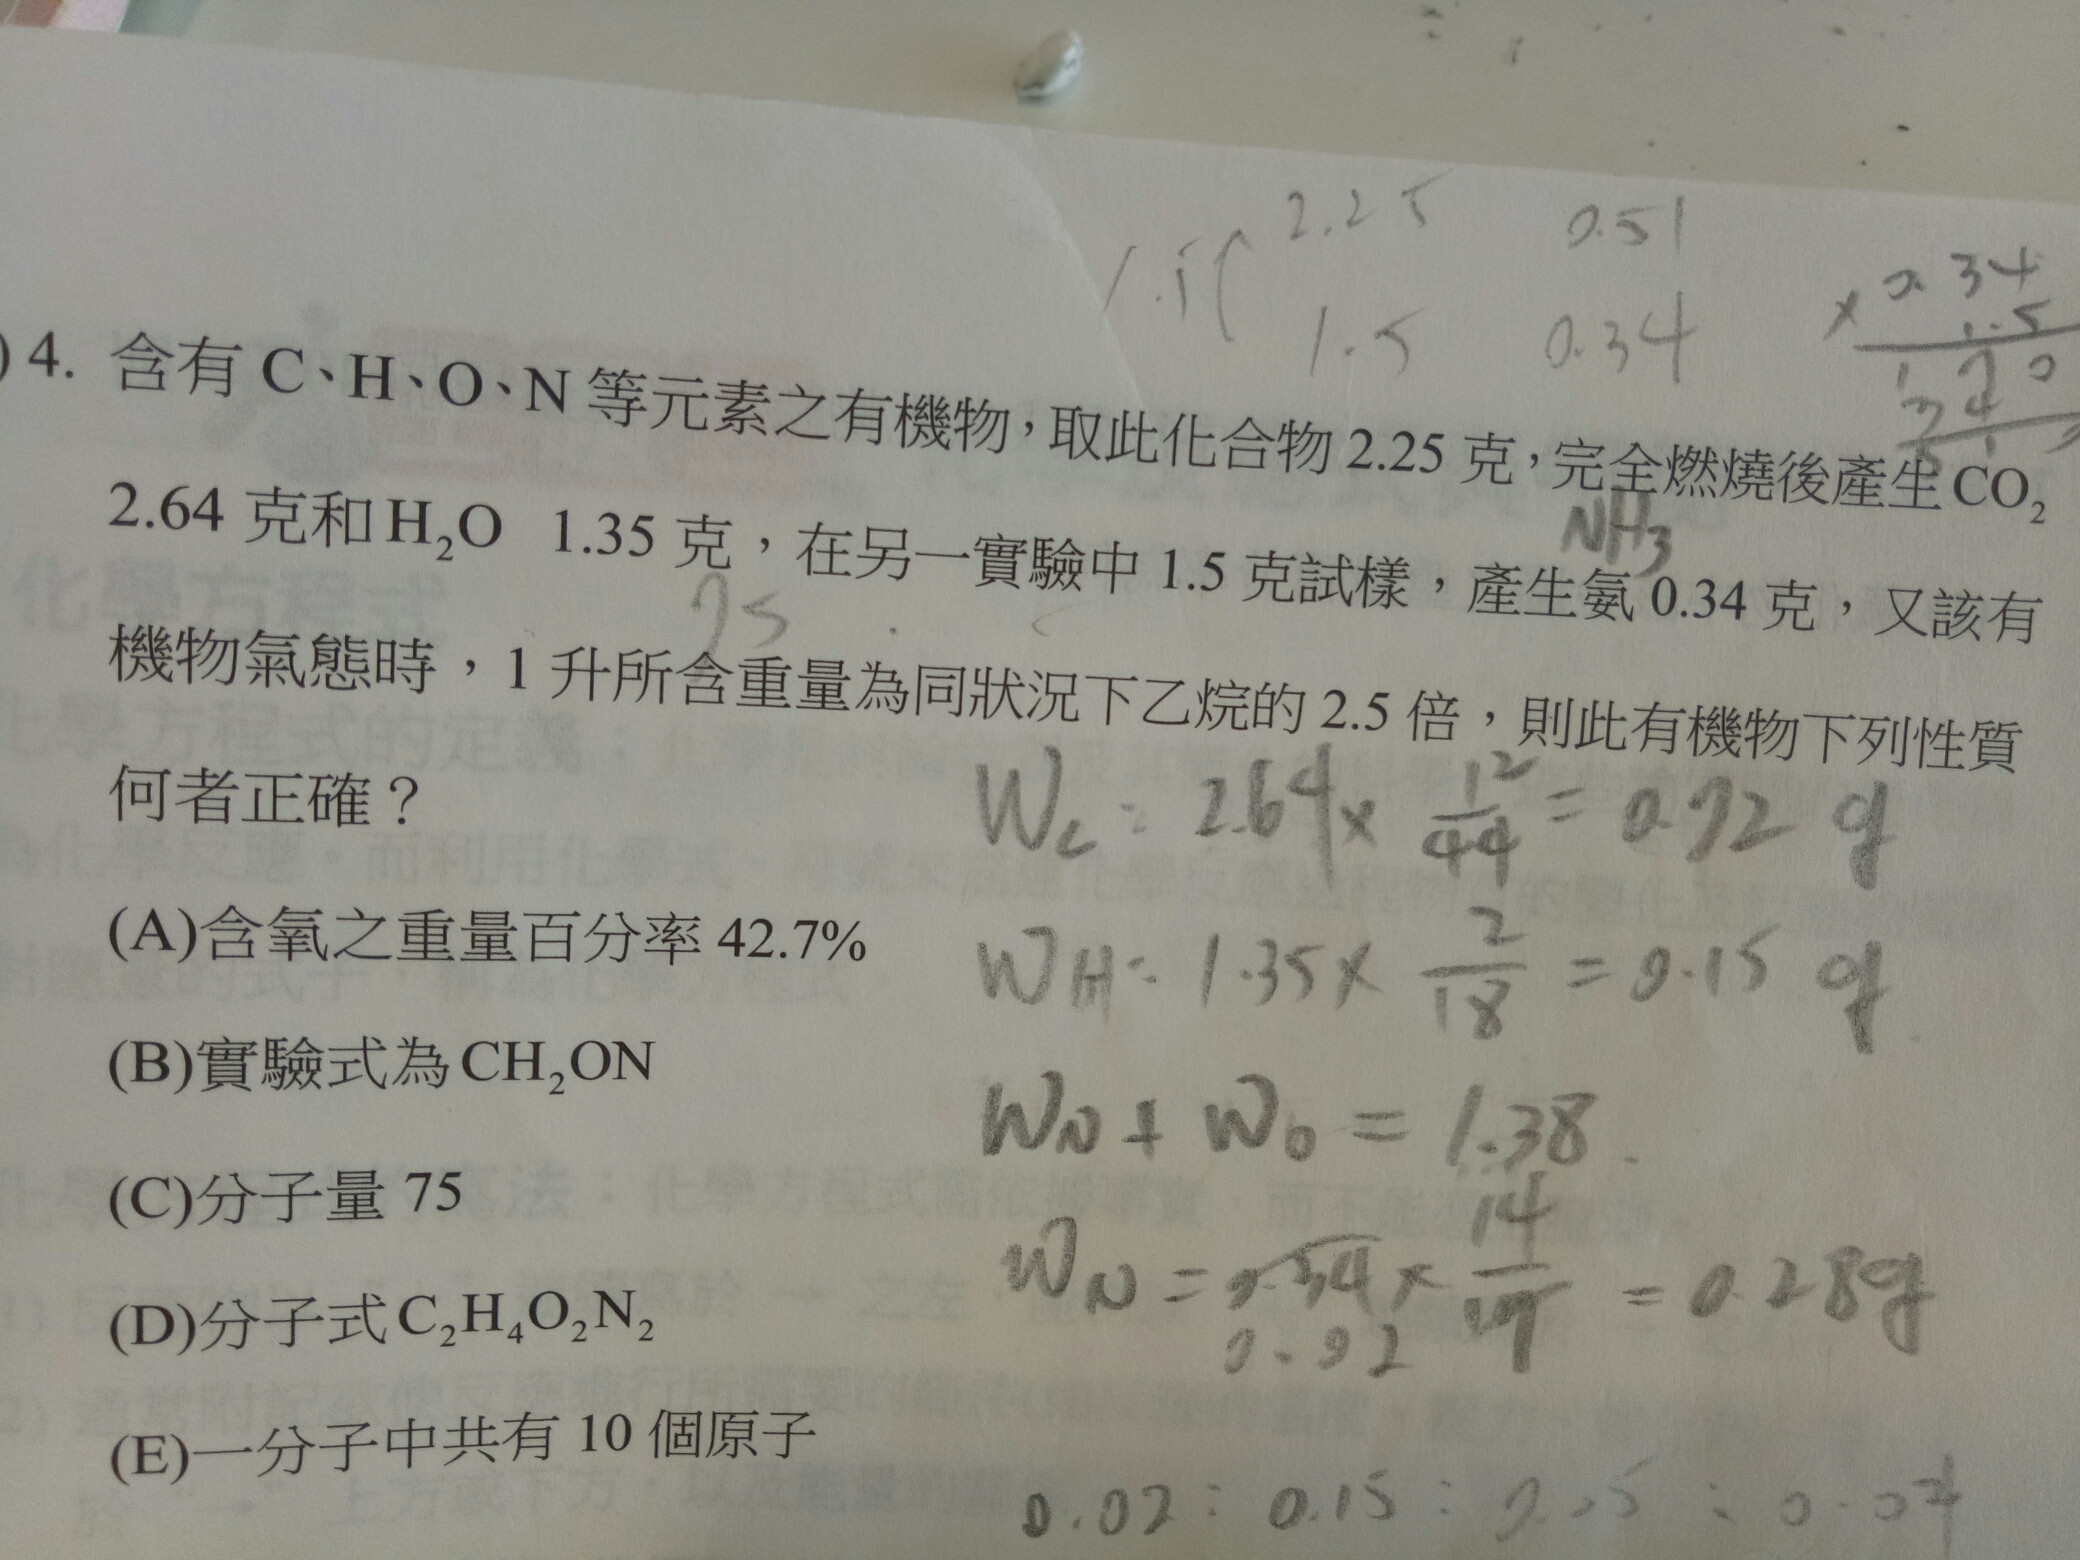 2.25 0.51
1.5( 1.5 0.34
0.34
× 1.5
170
)4. 含有 C、H、O、N 等元素之有機物，取此化合物 2.25 克，完全燃燒後產生 CO₂
NH₃
2.64 克和 H₂O 1.35 克，在另一實驗中 1.5 克試樣，產生氨 0.34 克，又該有
75
機物氣態時，1 升所含重量為同狀況下乙烷的 2.5 倍，則此有機物下列性質
何者正確？
Wc = 2.64 × 12/44 = 0.72 g
(A)含氧之重量百分率 42.7%
WH = 1.35 × 2/18 = 0.15 g
(B)實驗式為 CH₂ON
WN + WO = 1.38
(C)分子量 75
WN = 0.34 × 14/17 = 0.28g
0.02
(D)分子式 C₂H₄O₂N₂
(E)一分子中共有 10 個原子
0.02 : 0.15 :